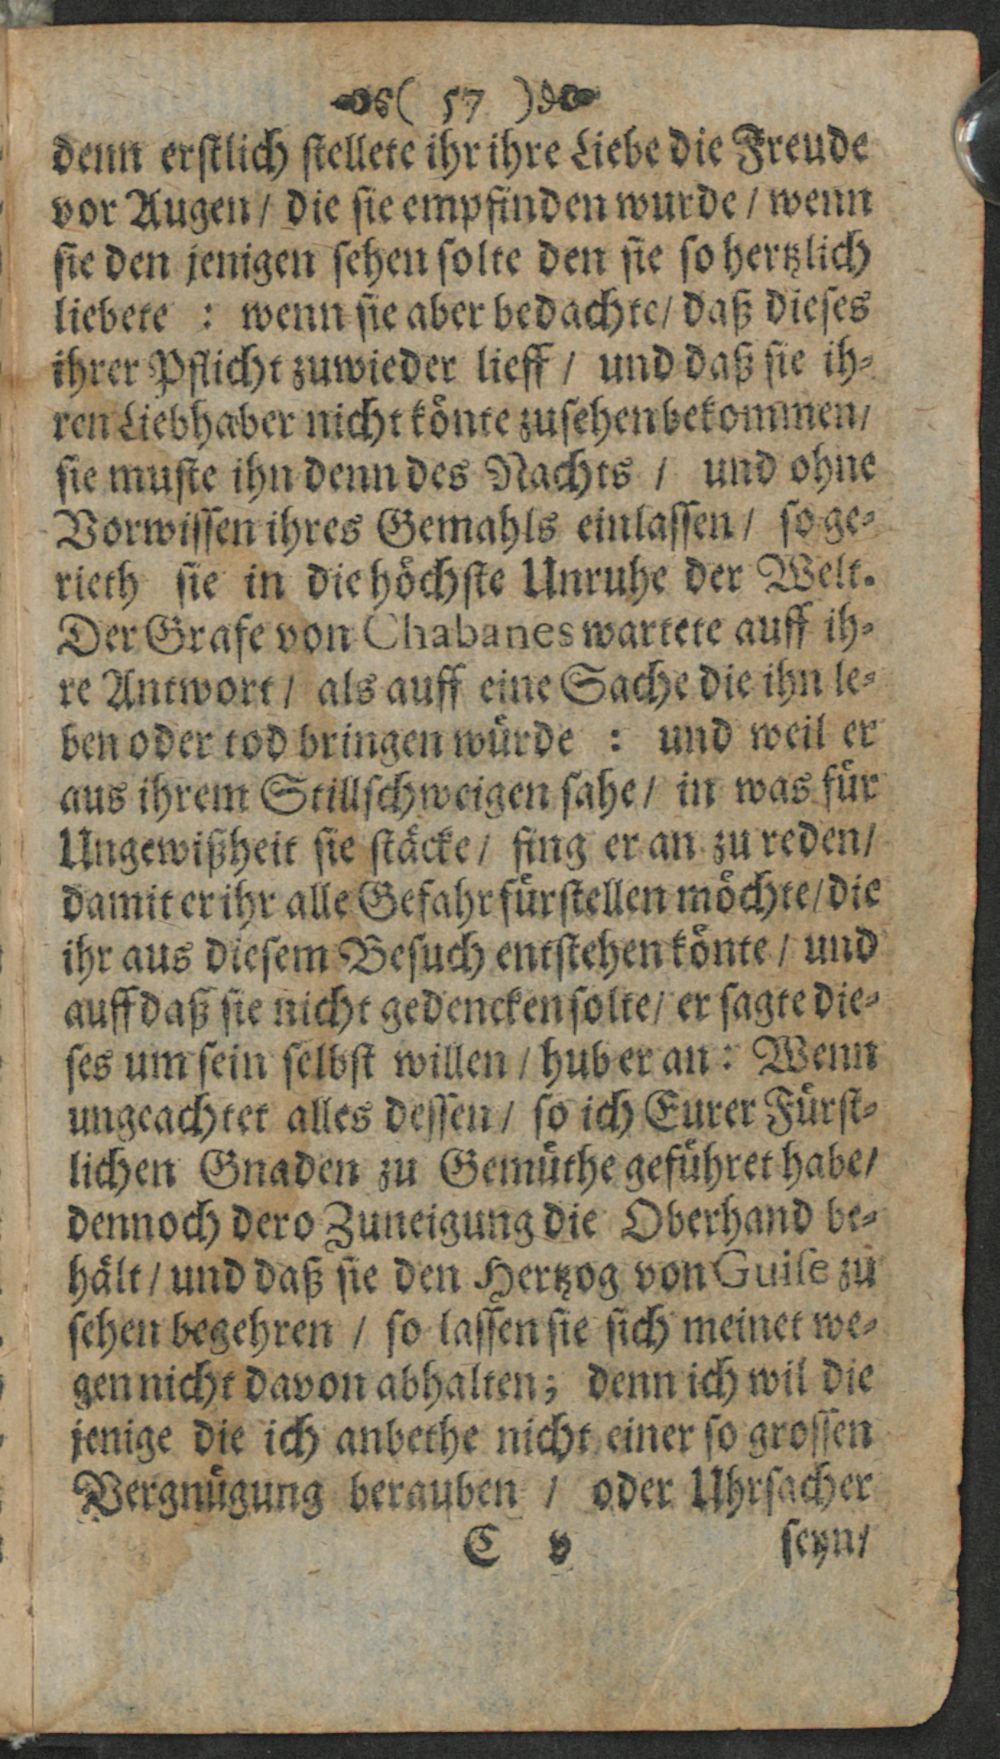 ( 57 )
denn erstlich stellete ihr ihre Liebe die Freude
vor Augen / die sie empfinden wurde / wenn
sie den jenigen sehen solte den sie so hertzlich
liebete : wenn sie aber bedachte / daß dieses
ihrer Pflicht zuwieder lieff / und daß sie ih-
ren Liebhaber nicht könte zusehen bekommen /
sie muste ihn denn des Nachts / und ohne
Vorwissen ihres Gemahls einlassen / so ge-
rieth sie in die höchste Unruhe der Welt.
Der Grafe von Chabanes wartete auff ih-
re Antwort / als auff eine Sache die ihn le-
ben oder tod bringen würde : und weil er
aus ihrem Stillschweigen sahe / in was für
Ungewißheit sie stäcke / fing er an zu reden /
damit er ihr alle Gefahr fürstellen möchte / die
ihr aus diesem Besuch entstehen könte / und
auff daß sie nicht gedencken solte / er sagte die-
ses um sein selbst willen / hub er an : Wenn
ungeachtet alles dessen / so ich Eurer Fürst-
lichen Gnaden zu Gemüthe geführet habe /
dennoch dero Zuneigung die Oberhand be-
hält / und daß sie den Hertzog von Guise zu
sehen begehren / so lassen sie sich meinet we-
gen nicht davon abhalten; denn ich wil die
jenige die ich anbethe nicht einer so grossen
Vergnügung berauben / oder Uhrsacher
C v seyn /